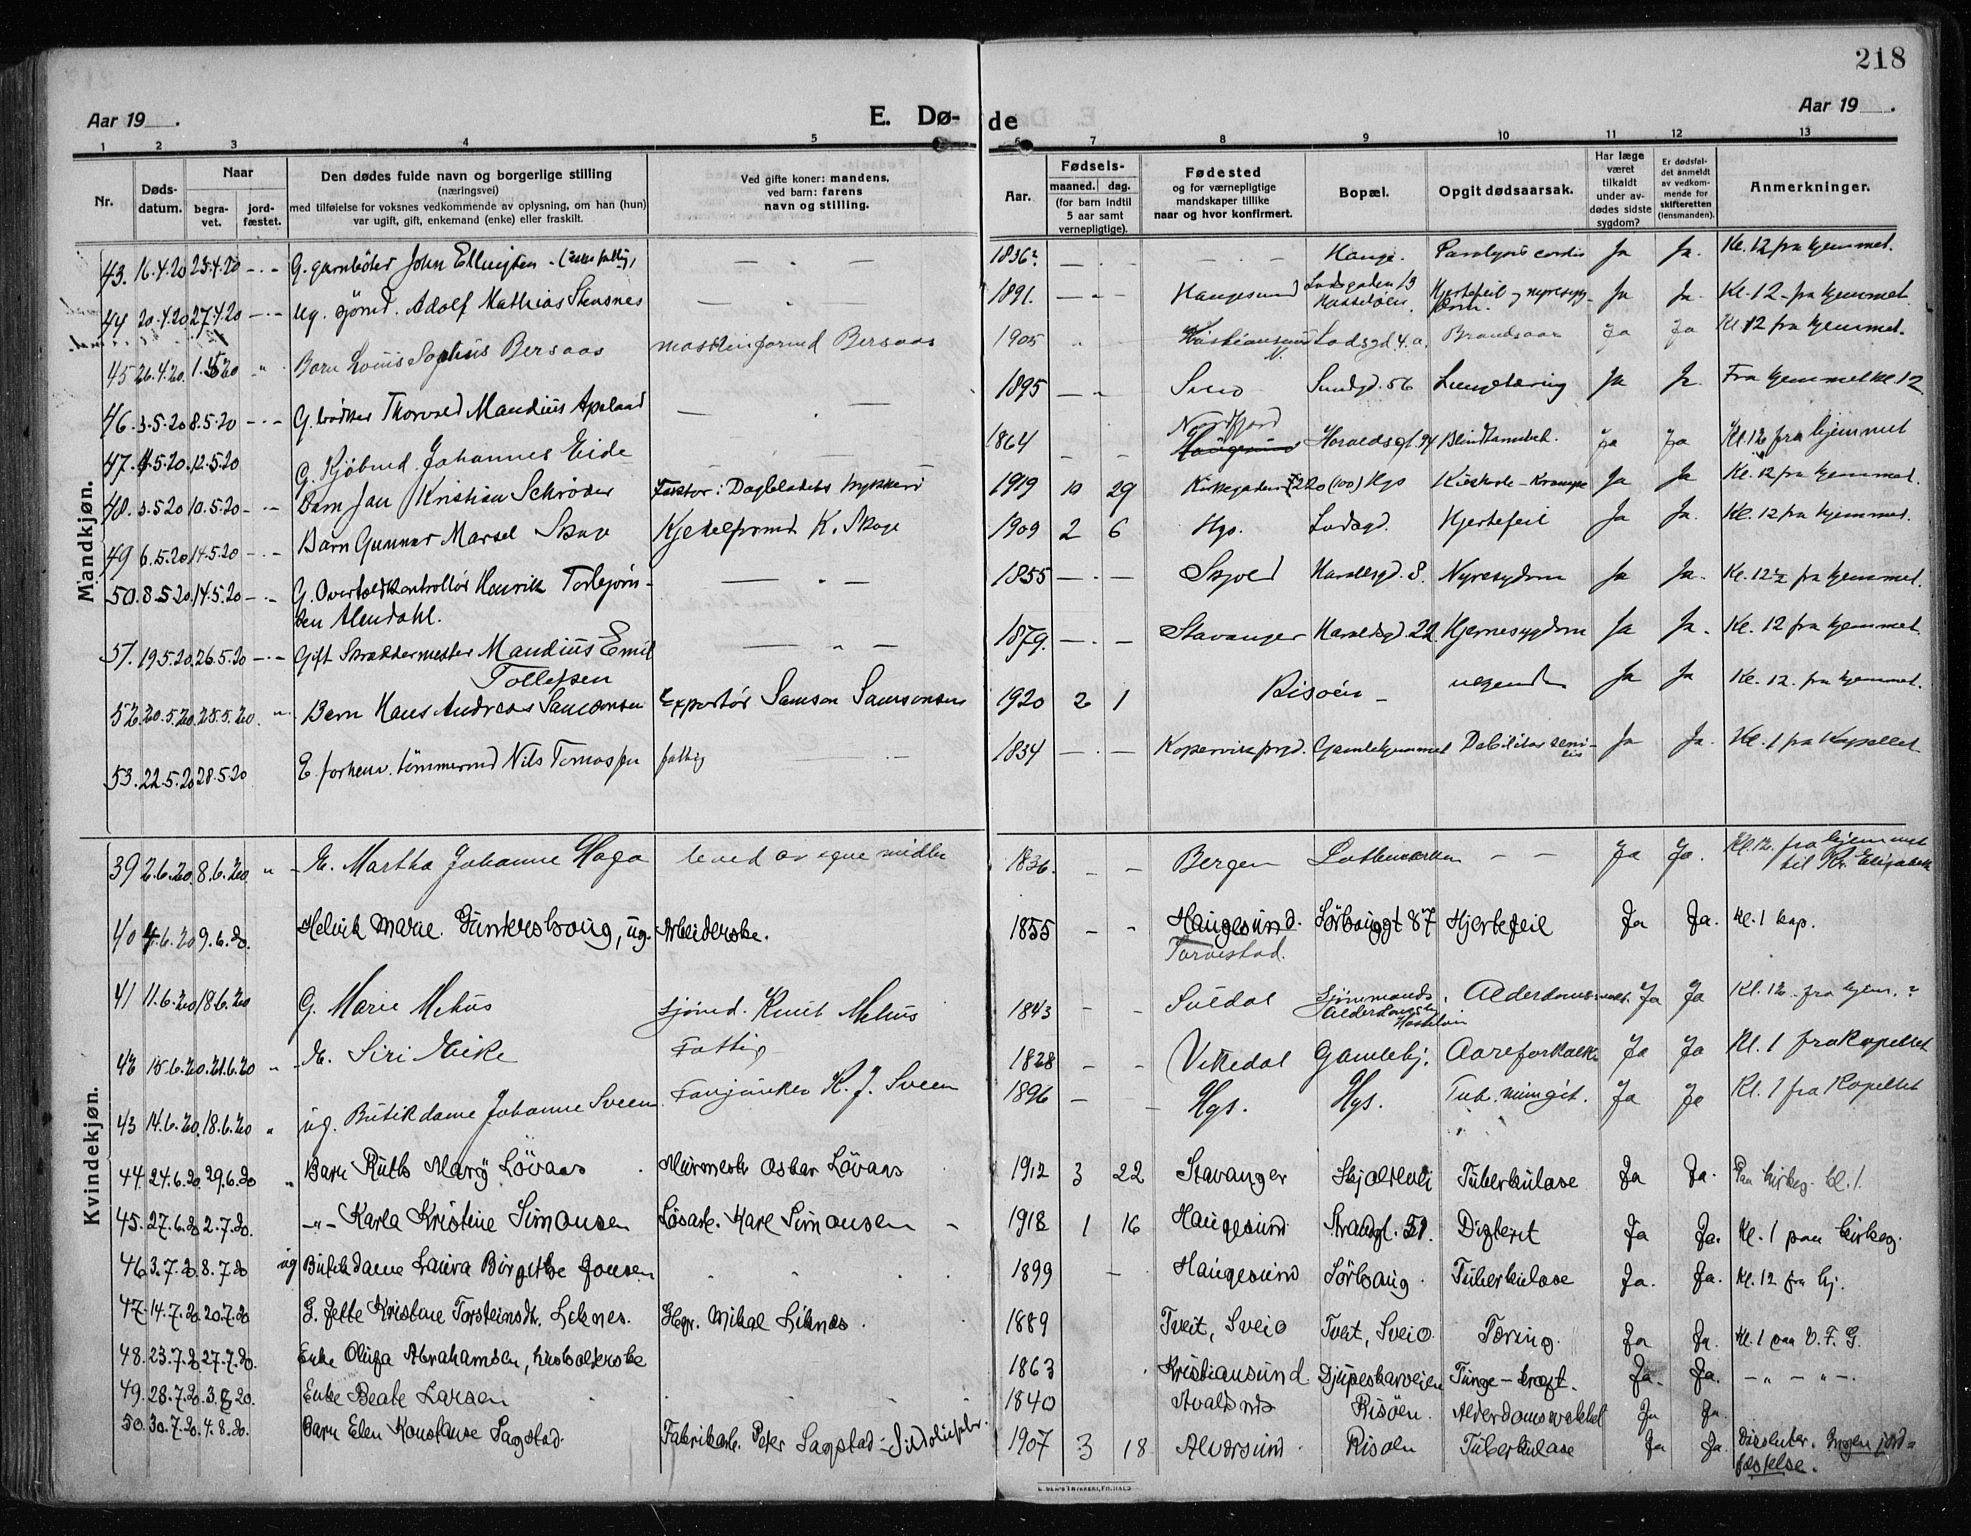 218
Aar 19 .
E. Dø-
de
Aar 19 .
1 2 3 4 5 6 7 8 9 10 11 12 13
Nr.
Døds-
datum.
Naar
begra-
vet.
jord-
fæstet.
Den dødes fulde navn og borgerlige stilling
(næringsvei)
med tilføielse for voksnes vedkommende av oplysning, om han (hun)
var ugift, gift, enkemand (enke) eller fraskilt.
Ved gifte koner: mandens,
ved barn: farens
navn og stilling.
Aar.
Fødsels-
maaned. dag.
(for barn indtil
5 aar samt
vernepligtige).
Fødested
og for værnepligtige
mandskaper tillike
naar og hvor konfirmert.
Bopæl.
Opgit dødsaarsak.
Har læge
været
tilkaldt
under av-
dødes sidste
sygdom?
Er dødsfal-
det anmeldt
av vedkom-
mende for
skifteretten
(lensmanden).
Anmerkninger.
Mandkjøn.
43. 16.4.20 23.4.20 - . - G. garnbøter John Ellingsen - . - 1836? - . - - . - Hauge. Paralysis cordis Ja Ja. Kl. 12 fra hjemmet.
44 20.4.20 27.4.20 - . - ug. sjömd. Adolf Mathias Stensnes - . - 1891. - . - Haugesund Lodsgaden 13 Hasseløen. Hjertefeil og nyresyg- Ja Ja. Kl. 12 - fra hjemmet
45 26.4.20. 1.5.20 " Barn Louis Sophus Bersaas maskinformd Bersaas 1905 Kristiansund Lodsgd. 4.a. Ja Ja Kl 12 fra hjemmet.
46. 3.5.20 8.5.20 - . - G. bødker Thorvald Mandius Apeland - . - 1895 - - Sveio Sundgd. 56 Lungetæring Ja Ja. Fra hjemmet kl. 12
47. 4.5.20. 12.5.20 G. Kjøbmd. Johannes Eide 1864 - - Nordfjord Haugesund Haraldsgt. 94 Blindtarmbet. Ja Ja Kl. 12 fra hjemmet
48. 3.5.20 10.5.20 - - Barn Jan Kristian Schrøder Faktor i Dagbladets trykkeri 1919 10 29 Kirkegaden 220 (100) Hgs - Krampe Ja Ja Kl. 12 fra hjemmet.
49 6.5.20 14.5.20 - . - Barn Gunnar Marsel Skage Kjedelformd K. Skage 1909 2 6 Hgs. Lodsgd. Hjertefeil Ja Ja. Kl. 12 fra hjemmet.
50. 8.5.20 14.5.20 - . - G. Overtoldkontrollør Henrik Torbjørn-
sen Alendahl. - " - 1855 - . - Skjold Haraldsgd. 8. Nyresygdom Ja Ja. Kl. 12½ fra hjemmet.
51. 19.5.20. 26.5.20 - . - Gift Skræddermester Mandius Emil
Tollefsen - " - 1879. - . - Stavanger Haraldsgd. 22 Hjernesygdom Ja Ja. Kl. 12 fra hjemmet
52. 20.5.20. 25.5.20. " Barn Hans Andreas Samsonsen Exportør Samson Samsonsen 1920 2 1 Risøen - Ja Ja Kl. 12. fra hjemmet.
53. 22.5.20 28.5.20 E. forhenv. tømmermd Nils Tomassen fattig 1834 - . - Koperviks prgd. Gamlehjemmet Debilitas seni-
lis Ja Ja. Kl. 1 fra Kapellet
Kvindekjøn.
39 2.6.20. 8.6.20. " - E. Martha Johanne Haga leved av egne midler 1836. - - Bergen - - Ja Ja. Kl. 12. fra hjemmet
til Kr. Elisabeth
40 4.6.20 9.6.20. Helvik Marie Gunderskoug, ug. Arbeiderske. 1855 - - Haugesund. Torvestad. Sörhauggt 87 Hjertefeil Ja Ja. Kl. 1 kap.
41 11.6.20 18.6.20 G. Marie Mehus sjømd. Knut Mehus 1843 - - Suldal Sjømmands. Alderdomshj. Hasseløen Alderdomssvakh. Ja Ja Kl. 12. fra hjem. ?
42 15.6.20. 21.6.20 " E. Siri Eike Fattig 1828 - - Vikedal Gamlehj. Aareforkalkn Ja Ja Kl. 1 fra Kapellet
43 14.6.20. 18.6.20 " ug. Butikdame Johanne Sveen K. J. Sveen 1896 - - Hgs. Hgs. Tub. mening
it. Ja Ja Kl. 1 fra Kapellet
44 24.6.20. 29.6.20 " Barn Ruth Mary Lövaas Murmestr Oskar Lövaas 1912 3 22 Stavanger Skjoldvei Tuberkulose Ja Ja. Paa kirkeg. kl. 1.
45. 27.6.20 2.7.20. - " - Karla Kristine Simonsen Løsarb. Karl Simonsen - 1918 1 16 Haugesund Strandgt. 51. Difterit Ja Ja. Kl. 1 paa kirkeg.
46 3.7.20 8.7.20 ug Butikdame Laura Birgitte Jonsen 1899 - Haugesund Sørhaug. Tuberkulose Ja. Ja. Kl. 12 fra hj.
47. 14.7.20 20.7.20 G. Jette Kristine Torsteinsdtr. Liknes. Mikal Liknes. 1889 Tveit, Sveio Tveit, Sveio Tæring. Ja Ja. Kl. 1 paa V. F. G.
48. 23.7.20 27.7.20. Enke Olufa Abrahamsen, husholderske 1863 Kristiansund Djupeskarveien Tunge-kræft. Ja. Ja. - " - " -.
49. 28.7.20 3.8.20. Enke Beate Larsen 1840 Avaldsnes Risøen. Alderdomssvakhet Ja Ja.
50. 30.7.20. 4.8.20. Barn Elen Konstanse Sagstad. Fabrikarb. Peter Sagstad - Sildoliefabr. 1907 3 18 Alversund Risøen Tuberkulose Ja Ja. Dissenter. Ingen jord=
fæstelse.